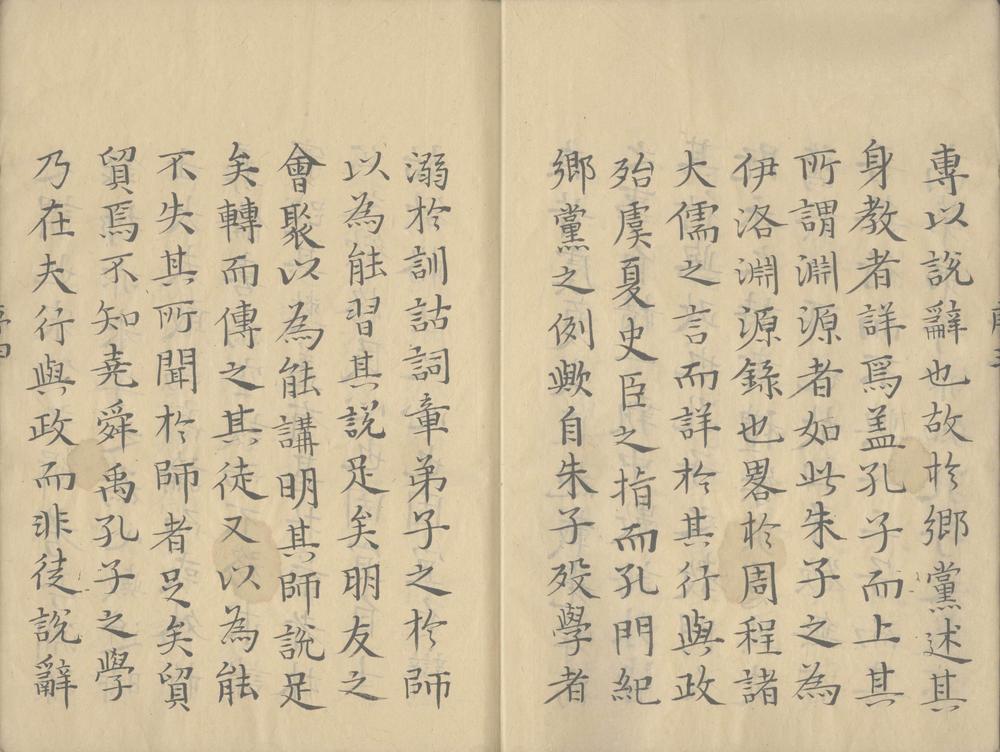 專以説辭也故於鄉黨述其
身教者詳焉盖孔子而上其
所謂淵源者如此朱子之為
伊洛淵源錄也畧於周程諸
大儒之言而詳於其行與政
殆虞夏史臣之指而孔門紀
鄉黨之例歟自朱子殁學者
溺於訓詁詞章弟子之於師
以為能習其説足矣明友之
會聚以為能講明其師説足
矣轉而傳之其徒又以為能
不失其所聞於師者足矣貿
貿焉不知堯舜禹孔子之學
乃在夫行與政而非徒説辭